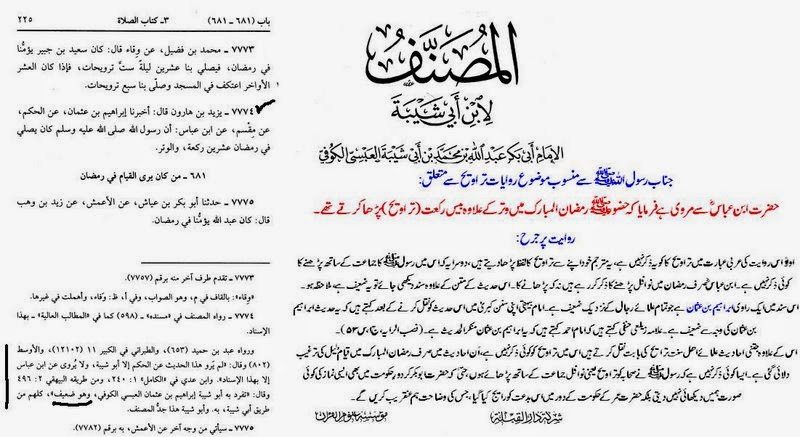 باب (٦٨١ - ٦٨١)
٣- كتاب الصلاة
٢٢٥
٧٧٧٣ - محمد بن فضيل، عن وِقاء قال: كان سعيد بن جبير يؤمُّنا
في رمضان، فيصلي بنا عشرين ليلةً ستَّ ترويحات، فإذا كان العشر
الأواخر اعتكف في المسجد وصلّى بنا سبع ترويحات.
٧٧٧٤ - يزيد بن هارون قال: أخبرنا إبراهيم بن عثمان، عن الحكم،
عن مِقْسم، عن ابن عباس: أن رسول الله صلى الله عليه وسلم كان يصلي
في رمضان عشرين ركعة، والوتر.
٦٨١ - من كان يرى القيام في رمضان
٧٧٧٥ - حدثنا أبو بكر بن عياش، عن الأعمش، عن زيد بن وهب
قال: كان عبد الله يؤمُّنا في رمضان.
٧٧٧٣ - تقدم طرف آخر منه برقم (٧٧٥٧).
«وِقاء»: بالقاف في م، وهو الصواب، وفي أ، ظ: وفاء، وأهملت في غيرها.
٧٧٧٤ - رواه المصنف في «مسنده» - (٥٩٨) كما في «المطالب العالية» - بهذا
الإسناد.
ورواه عبد بن حميد (٦٥٣)، والطبراني في الكبير ١١ (١٢١٠٢)، والأوسط
(٨٠٢) وقال: «لم يَرْوِ هذا الحديث عن الحكم إلا أبو شيبة، ولا يُروى عن ابن عباس
إلا بهذا الإسناد». وابن عدي في «الكامل» ١: ٢٤٠، ومن طريقه البيهقي ٢: ٤٩٦
وقال: «تفرد به أبو شيبة إبراهيم بن عثمان العبسي الكوفي، وهو ضعيف»، كلهم من
طريق أبي شيبة، به. وأبو شيبة هذا جدُّ المصنف.
٧٧٧٥ - سيأتي من وجه آخر عن الأعمش، به برقم (٧٧٨٢)
المُصَنَّفُ
لِابْنِ أَبِي شَيْبَةَ
الإمام أبي بكر عبد الله بن محمد بن أبي شيبة العبسي الكوفي
جناب رسول اللہ ﷺ سے منسوب موضوع روایات تراویح سے متعلق:
حضرت ابن عباسؓ سے مروی ہے فرمایا کہ حضور ﷺ رمضان المبارک میں وتر کے علاوہ بیس رکعت (تراویح) پڑھا کرتے تھے۔
روایت پر جرح:
اولاً اس روایت کی عربی عبارت میں تراویح کا کوئی ذکر نہیں ہے، یہ مترجم خود اپنے سے تراویح کا لفظ بڑھا دیتے ہیں، دوسرا یہ کہ اس میں رسول ﷺ کا جماعت کے ساتھ پڑھنے کا
کوئی ذکر نہیں ہے۔ ابن عباسؓ صرف رمضان میں نوافل پڑھنے کا ذکر کر رہے ہیں نہ کہ پڑھانے کا۔ اس حدیث کے متن کے علاوہ سند دیکھی جائے تو یہ ضعیف ہے، ملاحظہ ہو۔
اس سند میں ایک راوی ابراہیم بن عثمان ہے جو تمام علمائے رجال کے نزدیک ضعیف ہے۔ امام بیہقی اپنی سنن کبریٰ میں اس حدیث کو نقل کرنے کے بعد کہتے ہیں کہ یہ حدیث ابراہیم
بن عثمان کی وجہ سے ضعیف ہے۔ علامہ زیلعی حنفی کہتے ہیں کہ امام احمد کہتے ہیں کہ یہ ابراہیم بن عثمان منکر الحدیث ہے۔ (نصب الرایہ ج۱، ص۵۳)
اس کے علاوہ جتنی احادیث علمائے اہل سنت تراویح کی بابت نقل کرتے ہیں اس میں تراویح کا کوئی ذکر نہیں ہے، ان احادیث میں صرف رمضان المبارک میں قیام اللیل کی ترغیب
دلائی گئی ہے۔ ایسا کوئی ذکر نہیں ہے کہ رسول ﷺ نے صحابہ کو تراویح یعنی نوافل جماعت کے ساتھ پڑھائے ہوں، حتیٰ کہ حضرت ابو بکر کے دور حکومت میں بھی ایسی نماز کی کوئی
صورت ہمیں دکھائی نہیں دیتی بلکہ حضرت عمر کے حکومت کے دور میں اس بدعت کو رائج کیا گیا، جس کی وضاحت ہم عنقریب کریں گے۔
شركة دار القبلة
مؤسسة علوم القرآن